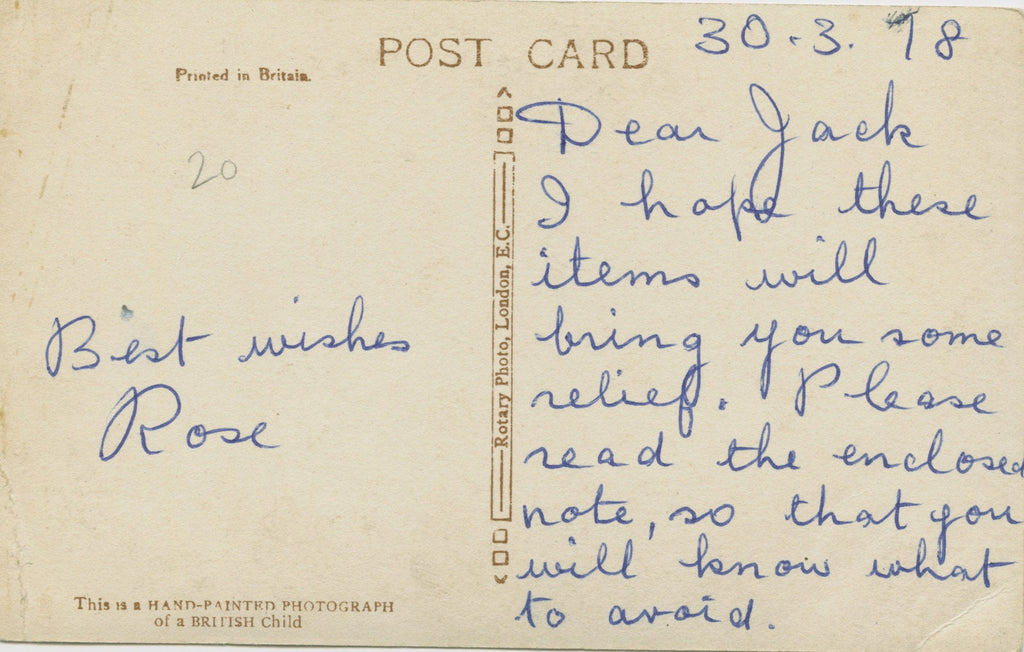 POST CARD
30.3.98
Printed in Britain.
20
Dear Jack
I hope these
items will
bring you some
relief. Please
read the enclosed
note, so that you
will know what
to avoid.
Best wishes
Rose
Rotary Photo, London, E.C.
This is a HAND-PAINTED PHOTOGRAPH
of a BRITISH Child